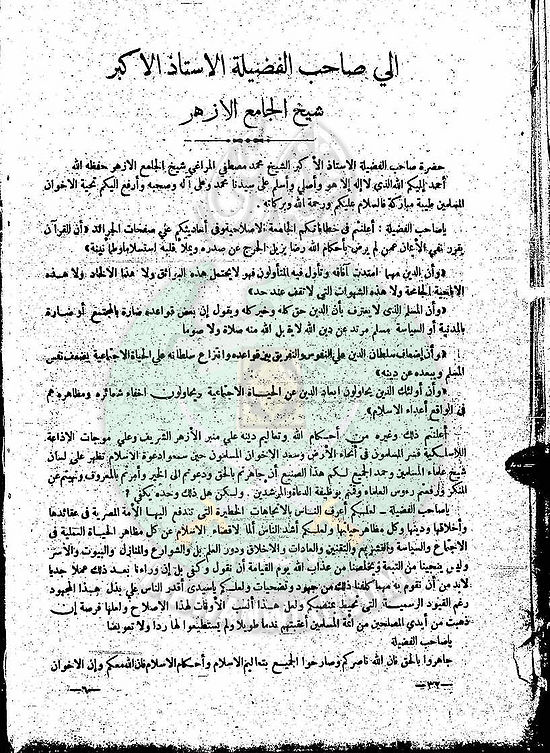 الي صاحب الفضيلة الاستاذ الاكبر
شيخ الجامع الازهر
حضرة صاحب الفضيلة الاستاذ الأكبر الشيخ محمد مصطفي المراغي شيخ الجامع الازهر حفظه الله
أحمد إليكم الله الذي لا إله إلا هو وأصلي وأسلم على سيدنا محمد وعلى آله وصحبه وأرفع اليكم تحية الاخوان
المسلمين طيبة مباركة فالسلام عليكم ورحمة الله وبركاته .
ياصاحب الفضيلة : أعلنتم في خطاباتكم الجامعة الاصلاحية وفى أحاديثكم علي صفحات الجرائد «أن القرآن
يقرر نفي الأيمان عمن لم يرض بأحكام الله رضا يزيل الحرج عن صدره ويملأ قلبه إستسلاما وطمأنينة»
«وأن الدين مهما امتدت آفاقه وتأول فيه المتأولون فهو لايحتمل هذه البوائق ولا هذا الالحاد ولا هذه
الاباحية الجامحة ولا هذه الشهوات التى لاتقف عند حد»
«وأن المسلم الذى لا يعترف بأن الدين حق كله وخير كله ويقول إن بعض قواعده ضارة بالمجتمع أو ضارة
بالمدنية أو السياسة مسلم مرتد عن دين الله لايقبل الله منه صلاة ولا صوما
«وأن إضعاف سلطان الدين علي النفوس والتفريق بين قواعده وانتزاع سلطانه علي الحياة الاجتماعية يضعف نفس
المسلم ويبعده عن دينه»
«وأن أولئك الذين يحاولون ابعاد الدين عن الحياة الاجتماعية ويحاولون اخفاء شعائره ومظاهره هم
في الواقع أعداء الاسلام»
أعلنتم ذلك وغيره من أحكام الله وتعاليم دينه علي منبر الأزهر الشريف وعلي موجات الاذاعة
اللاسلكية فسر المسلمون في أنحاء الأرض وسعد الاخوان المسلمون حين سمعوا دعوة الاسلام تظهر على لسان
شيخ علماء المسلمين وحمد الجميع لكم هذا الصنيع أن جاهرتم بالحق ودعوتم الى الخير وأمرتم بالمعروف ونهيتم عن
المنكر ورفعتم رءوس العلماء وقمتم بوظيفة الدعاة والمرشدين . ولكن هل ذلك وحده يكفي ؟
ياصاحب الفضيلة - لعلكم أعرف الناس بالاتجاهات الخطيرة التى تندفع اليها الأمة المصرية في عقائدها
وأخلاقها ودينها وكل مظاهر حياتها ولعلكم أشد الناس ألما لاقصاء الاسلام عن كل مظاهر الحياة العملية في
الاجتماع والسياسة والتشريع والتقنين والعادات والاخلاق ودور العلم بل والشوارع والمنازل والبيوت والأسر
وليس ينجينا من التبعة ويخلصنا من عذاب الله يوم القيامة أن نقول وكفي بل إن وراءنا بعد ذلك عملا جديا
لابد من أن نقوم به مهما كلفنا ذلك من جهود وتضحيات ولعلكم ياسيدى أقدر الناس علي بذل هذا المجهود
رغم القيود الرسمية التى تحيط بمنصبكم ولعل هذا أنسب الأوقات لهذا الاصلاح ولعلها فرصة إن
ذهبت من أيدي المصلحين من أئمة المسلمين أعقبتهم ندما طويلا ولم يستطيعوا لها ردا ولا تعويضا
ياصاحب الفضيلة
جاهروا بالحق فان الله ناصركم وصارحوا الجميع بتعاليم الاسلام وأحكام الاسلام فان الله معكم وإن الاخوان